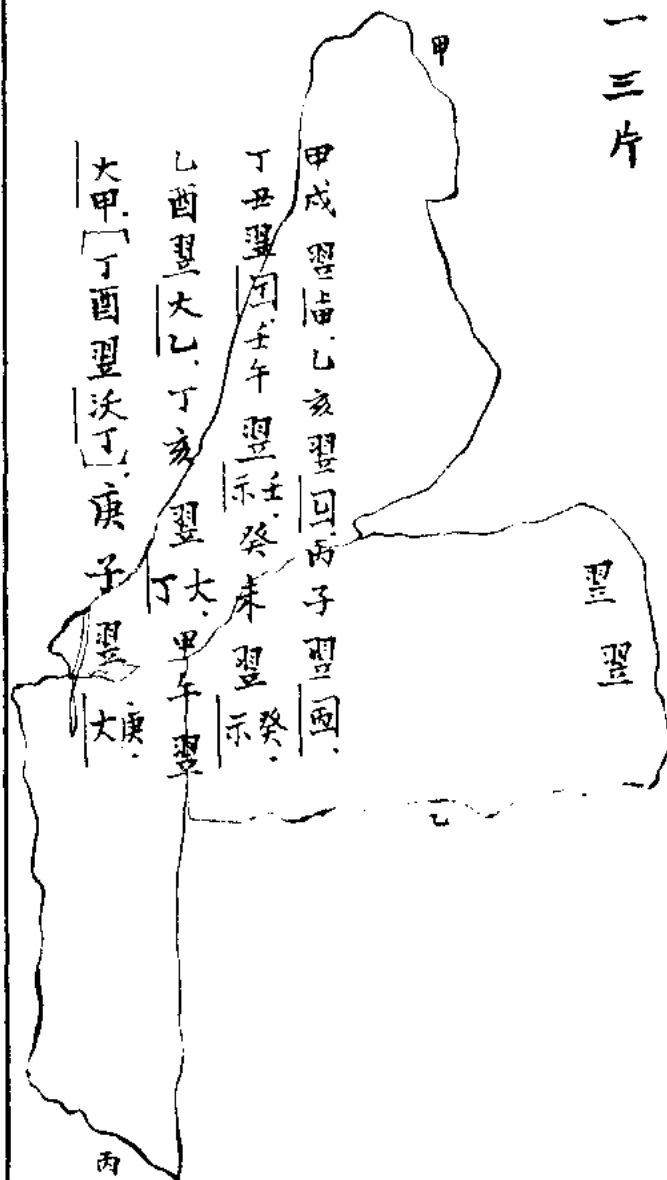 一三片
甲
翌
翌
甲戌翌上甲、乙亥翌匚乙、丙子翌匚丙、
丁丑翌匚丁、壬午翌示壬、癸未翌示癸、
乙酉翌大乙、丁亥翌大丁、甲午翌
大甲、[丁酉翌沃丁]、庚子翌大庚、
乙
丙